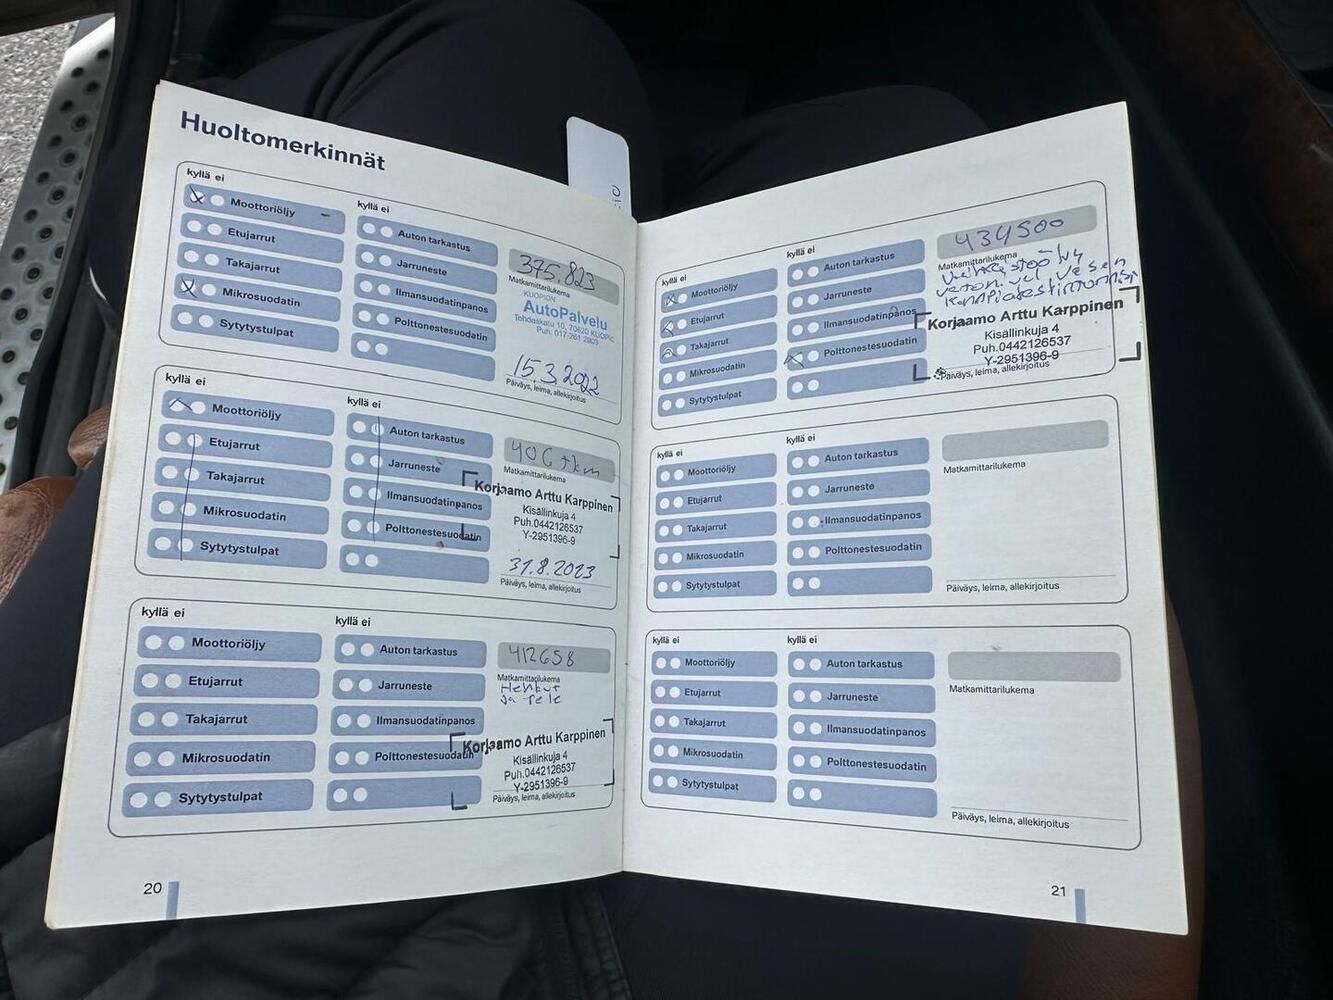 Huoltomerkinnät
kyllä ei
Moottoriöljy
Etujarrut
Takajarrut
Mikrosuodatin
Sytytystulpat
kyllä ei
Auton tarkastus
Jarruneste
Ilmansuodatinpanos
Polttonestesuodatin
375.823
Matkamittarilukema
KUOPION
AutoPalvelu
Tehdaskatu 10, 70620 KUOPIO
Puh. 017-261 2903
15.3.2022
Päiväys, leima, allekirjoitus
kyllä ei
Moottoriöljy
Etujarrut
Takajarrut
Mikrosuodatin
Sytytystulpat
kyllä ei
Auton tarkastus
Jarruneste
Ilmansuodatinpanos
Polttonestesuodatin
406 tkm
Matkamittarilukema
Korjaamo Arttu Karppinen
Kisällinkuja 4
Puh.0442126537
Y-2951396-9
31.8.2023
Päiväys, leima, allekirjoitus
kyllä ei
Moottoriöljy
Etujarrut
Takajarrut
Mikrosuodatin
Sytytystulpat
kyllä ei
Auton tarkastus
Jarruneste
Ilmansuodatinpanos
Polttonestesuodatin
412658
Matkamittarilukema
Hehkut
ja rele
Korjaamo Arttu Karppinen
Kisällinkuja 4
Puh.0442126537
Y-2951396-9
Päiväys, leima, allekirjoitus
20
kyllä ei
Moottoriöljy
Etujarrut
Takajarrut
Mikrosuodatin
Sytytystulpat
kyllä ei
Auton tarkastus
Jarruneste
Ilmansuodatinpanos
Polttonestesuodatin
434500
Matkamittarilukema
Korjaamo Arttu Karppinen
Kisällinkuja 4
Puh.0442126537
Y-2951396-9
Päiväys, leima, allekirjoitus
kyllä ei
Moottoriöljy
Etujarrut
Takajarrut
Mikrosuodatin
Sytytystulpat
kyllä ei
Auton tarkastus
Jarruneste
Ilmansuodatinpanos
Polttonestesuodatin
Matkamittarilukema
Päiväys, leima, allekirjoitus
kyllä ei
Moottoriöljy
Etujarrut
Takajarrut
Mikrosuodatin
Sytytystulpat
kyllä ei
Auton tarkastus
Jarruneste
Ilmansuodatinpanos
Polttonestesuodatin
Matkamittarilukema
Päiväys, leima, allekirjoitus
21